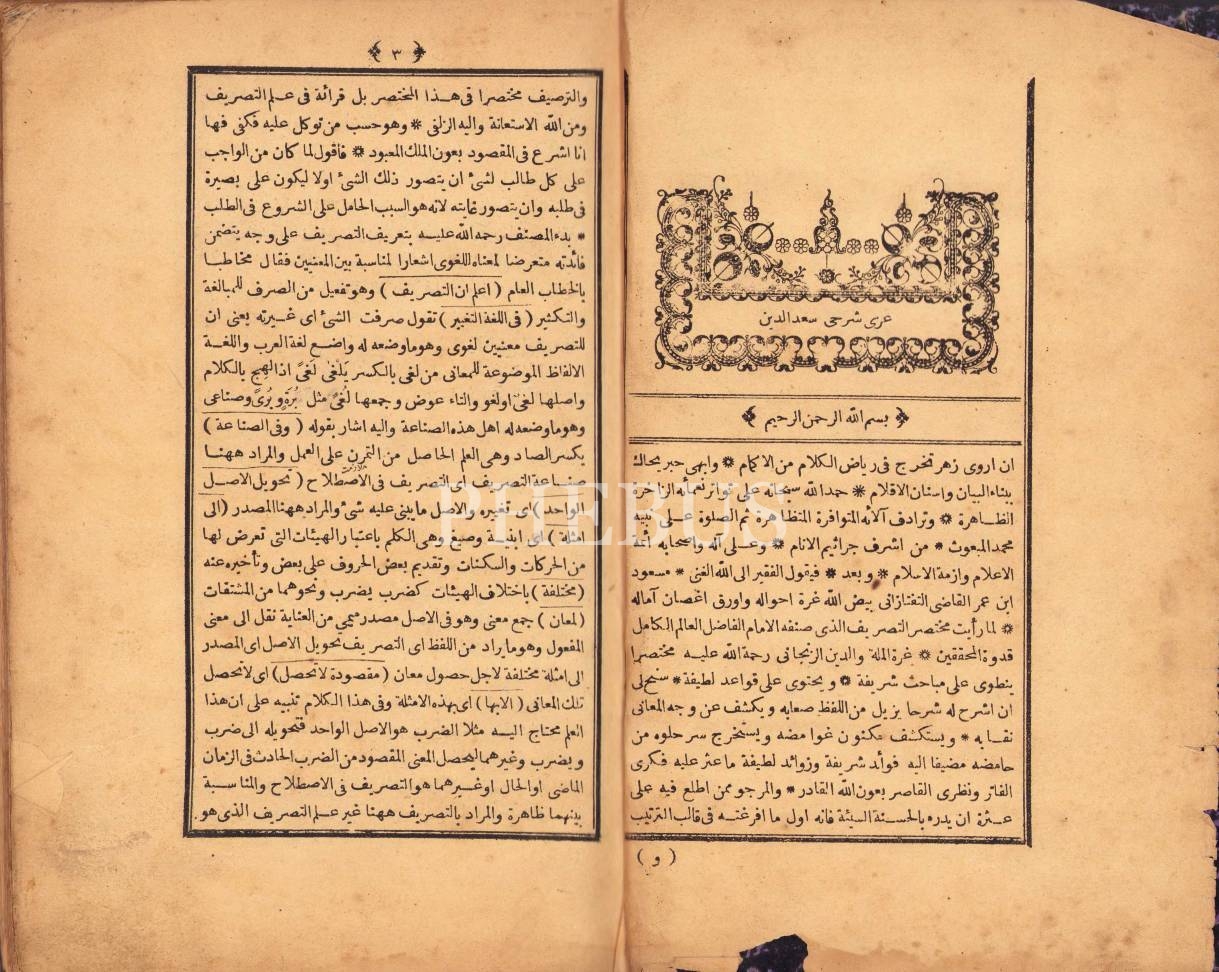 عزى شرحى سعد الدين
بسم الله الرحمن الرحيم
ان اروى زهر تخرج فى رياض الكلام من الاكمام * وابهى حبر يحاك
ببناء البيان واسنان الاقلام * حمد الله سبحانه على تواتر نعمائه الزاخرة
الظاهرة * وترادف آلائه المتوافرة المتظاهرة ثم الصلوة على نبيه
محمد المبعوث * من اشرف جراثيم الانام * وعلى آله واصحابه ائمة
الاعلام وازمة الاسلام * وبعد * فيقول الفقير الى الله الغنى * مسعود
ابن عمر القاضى التفتازانى بيض الله غرة احواله واورق اغصان آماله
* لما رأيت مختصر التصريف الذى صنفه الامام الفاضل العالم الكامل
قدوة المحققين * عزة الملة والدين الزنجانى رحمة الله عليه مختصرا
ينطوى على مباحث شريفة * ويحتوى على قواعد لطيفة * سنح لى
ان اشرح له شرحا يزيل من اللفظ صعابه ويكشف عن وجه المعانى
نقابه * ويستكشف مكنون غوامضه ويستخرج سر حلوه من
حامضه مضيفا اليه فوائد شريفة وزوائد لطيفة ما عثر عليه فكرى
الفاتر ونظرى القاصر بعون الله القادر * والمرجو ممن اطلع فيه على
عثرة ان يدره بالحسنة السيئة فانه اول ما افرغته فى قالب الترتيب
( و )
٣
والترصيف مختصرا فى هذا المختصر بل قرائة فى علم التصريف
ومن الله الاستعانة واليه الزلفى * وهو حسب من توكل عليه فكفى فها
انا اشرع فى المقصود بعون الملك المعبود * فاقول لما كان من الواجب
على كل طالب لشئ ان يتصور ذلك الشئ اولا ليكون على بصيرة
فى طلبه وان يتصور غايته لانه هو السبب الحامل على الشروع فى الطلب
* بدء المصنف رحمه الله عليه بتعريف التصريف على وجه يتضمن
فائدته متعرضا لمعناه اللغوى اشعارا لمناسبة بين المعنيين فقال مخاطبا
بالخطاب العام ( اعلم ان التصريف ) وهو تفعيل من الصرف للمبالغة
والتكثير ( فى اللغة التغيير ) تقول صرفت الشئ اى غيرته يعنى ان
للتصريف معنيين لغوى وهو ما وضعه له واضع لغة العرب واللغة
الالفاظ الموضوعة للمعانى من لغى بالكسر يَلْغَى لَغىً اذا لهج بالكلام
واصلها لغى او لغو والتاء عوض وجمعها لُغىً مثل بُرَةٍ وبُرىً وصناعى
وهو ما وضعه له اهل هذه الصناعة واليه اشار بقوله ( وفى الصناعة )
بكسر الصاد وهى العلم الحاصل من التمرن على العمل والمراد ههنا
صناعة التصريف اى التصريف فى الاصطلاح ( تحويل الاصل
الواحد ) اى تغييره والاصل ما يبنى عليه شئ والمراد ههنا المصدر ( الى
امثلة ) اى ابنية وصيغ وهى الكلم باعتبار الهيئات التى تعرض لها
من الحركات والسكنات وتقديم بعض الحروف على بعض وتأخيره عنه
( مختلفة ) باختلاف الهيئات كضرب يضرب ونحوهما من المشتقات
( لمعان ) جمع معنى وهو فى الاصل مصدر ميمى من العناية نقل الى معنى
المفعول وهو ما يراد من اللفظ اى التصريف تحويل الاصل اى المصدر
الى امثلة مختلفة لاجل حصول معان ( مقصودة لا تحصل ) اى لا تحصل
تلك المعانى ( الا بها ) اى بهذه الامثلة وفى هذا الكلام تنبيه على ان هذا
العلم محتاج اليه مثلا الضرب هو الاصل الواحد فتحويله الى ضرب
ويضرب وغيرهما ليحصل المعنى المقصود من الضرب الحادث فى الزمان
الماضى او الحال او غيرهما هو التصريف فى الاصطلاح والمناسبة
بينهما ظاهرة والمراد بالتصريف ههنا غير علم التصريف الذى هو
PHEBUS